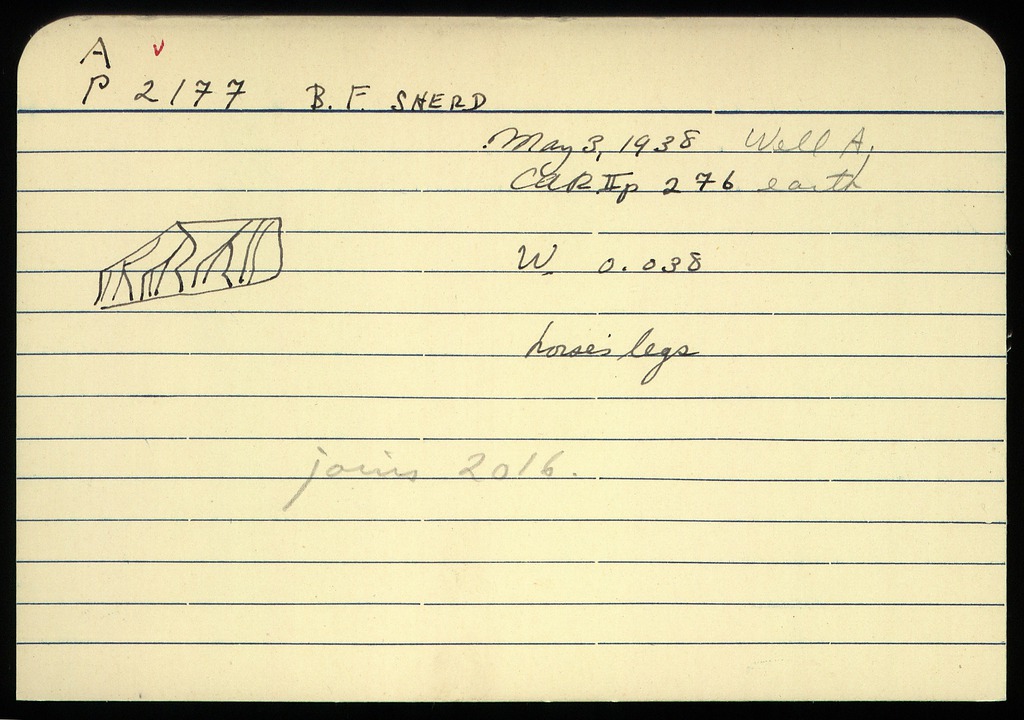 A ✓
P 2177 B. F. SHERD
May 3, 1938 Well A,
CAR II p 276 earth
W. 0.038
horse's legs
joins 2016.